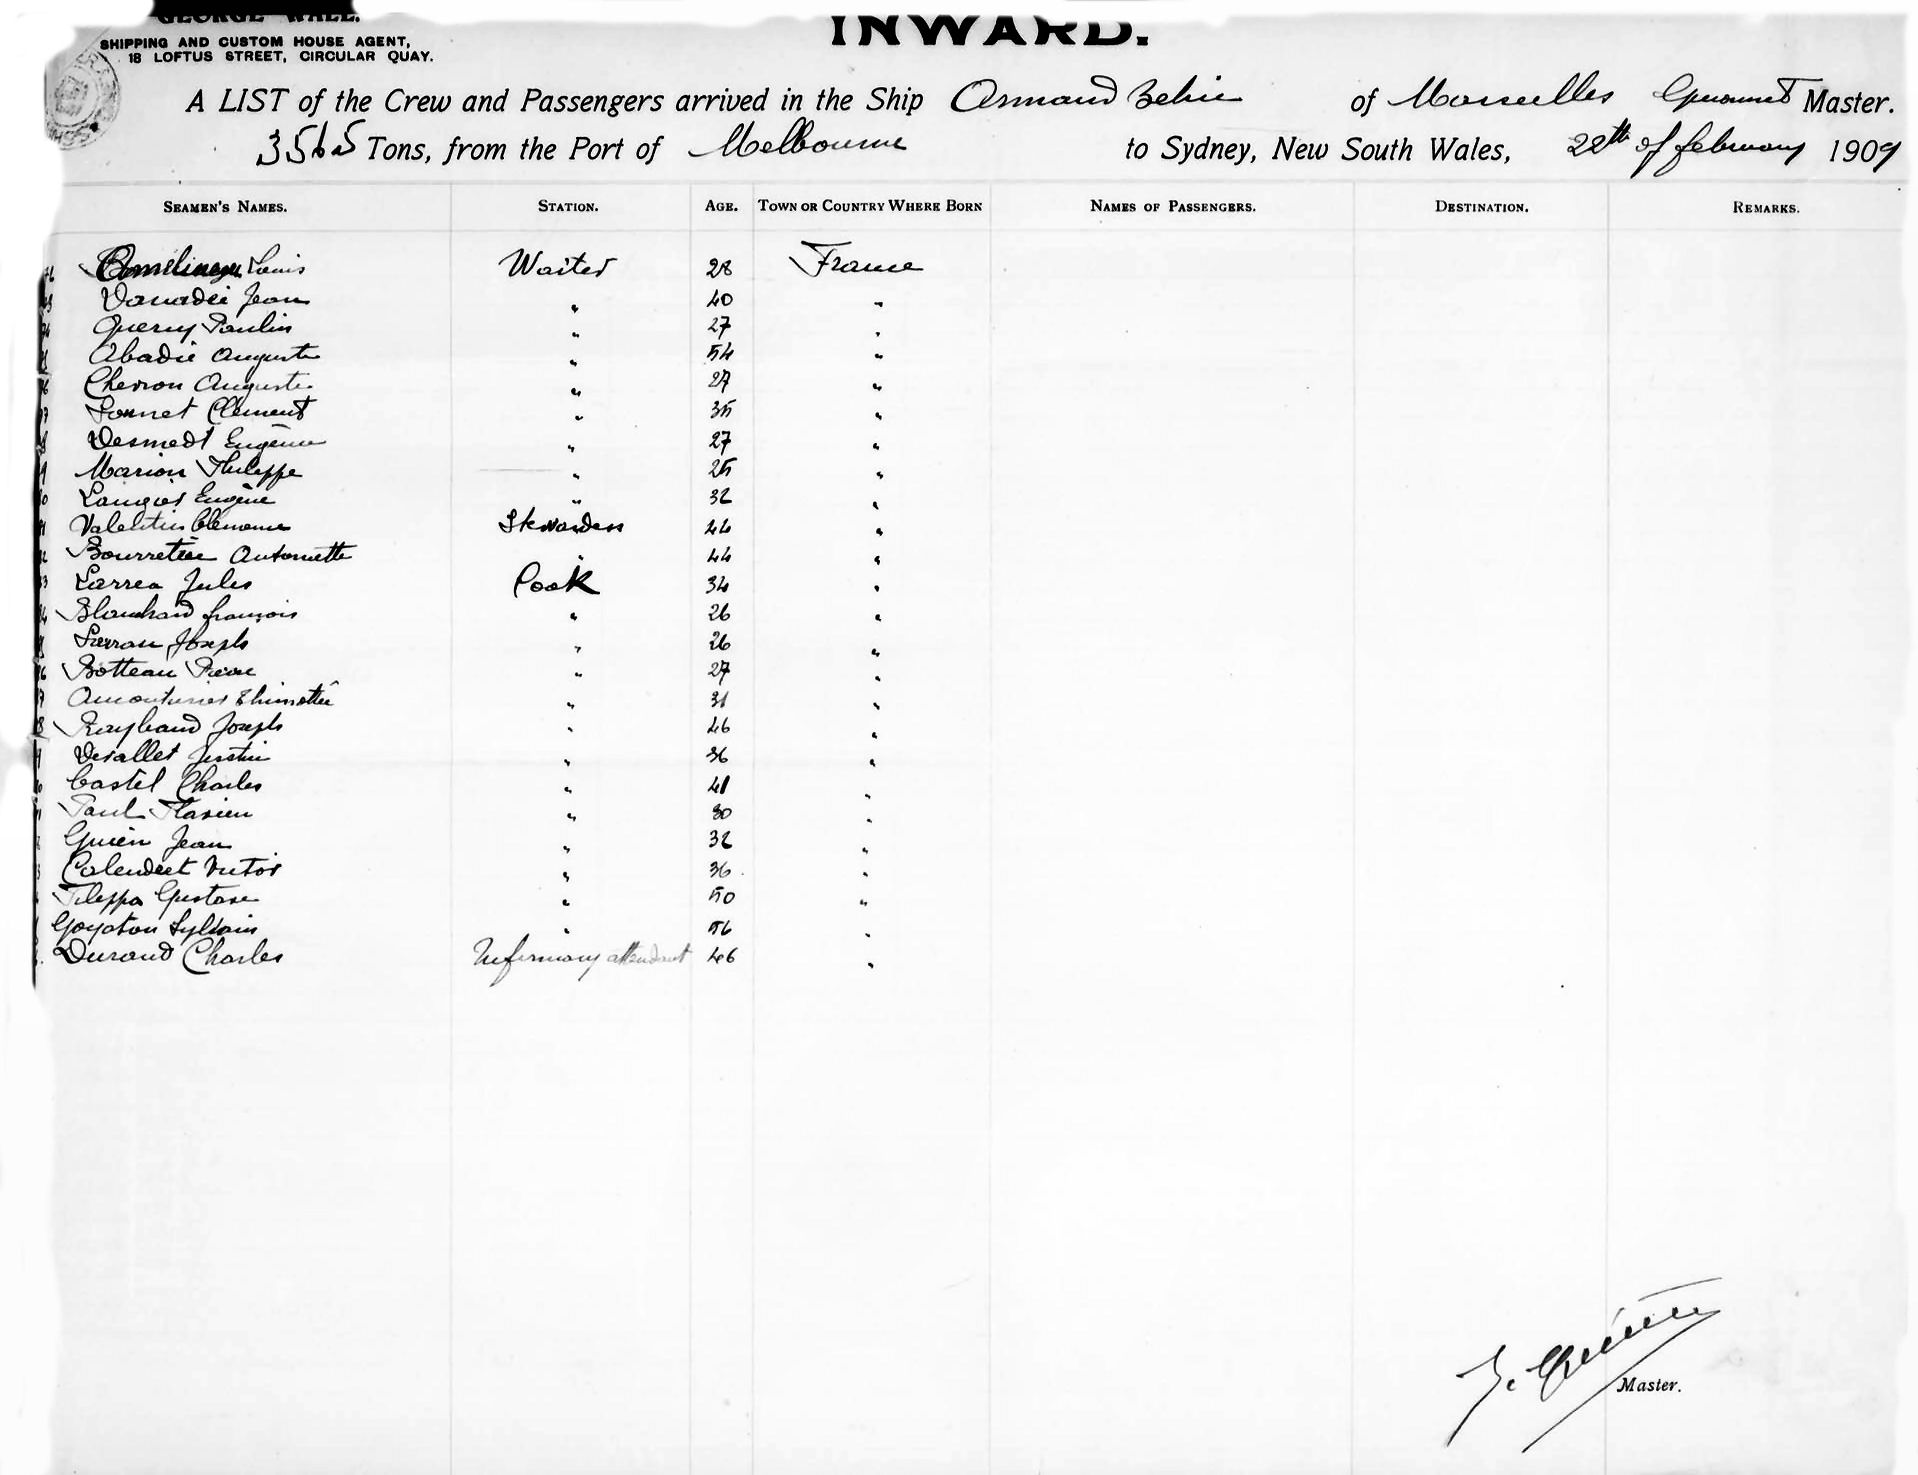 GEORGE WALL.
SHIPPING AND CUSTOM HOUSE AGENT,
18 LOFTUS STREET, CIRCULAR QUAY.
INWARD.
A LIST of the Crew and Passengers arrived in the Ship Armand Behic of Marseilles Master.
3565 Tons, from the Port of Melbourne to Sydney, New South Wales, 22th of february 1909
SEAMEN'S NAMES. STATION. AGE. TOWN OR COUNTRY WHERE BORN NAMES OF PASSENGERS. DESTINATION. REMARKS.
Louis Waiter 28 France
Jean " 40 "
Query Paulin " 27 "
Abadie Auguste " 54 "
Chevron Auguste " 27 "
Sonnet Clément " 35 "
Desmedt Eugène " 27 "
Marion Philippe " 25 "
Laugier Eugène " 32 "
Valentin Clémence Stewardess 44 "
Bourretère Antoinette " 44 "
Larrea Jules Cook 34 "
Blanchard françois " 26 "
Joseph " 26 "
Botteau Pierre " 27 "
31 "
Raybaud Joseph " 46 "
Justin " 36 "
Castel Charles " 41 "
Paul " 30 "
Guien Jean " 32 "
Calendret Victor " 36 "
Gustave " 50 "
Goyaton Sylvain " 56 "
Durand Charles Infirmary attendant 46 "
Master.